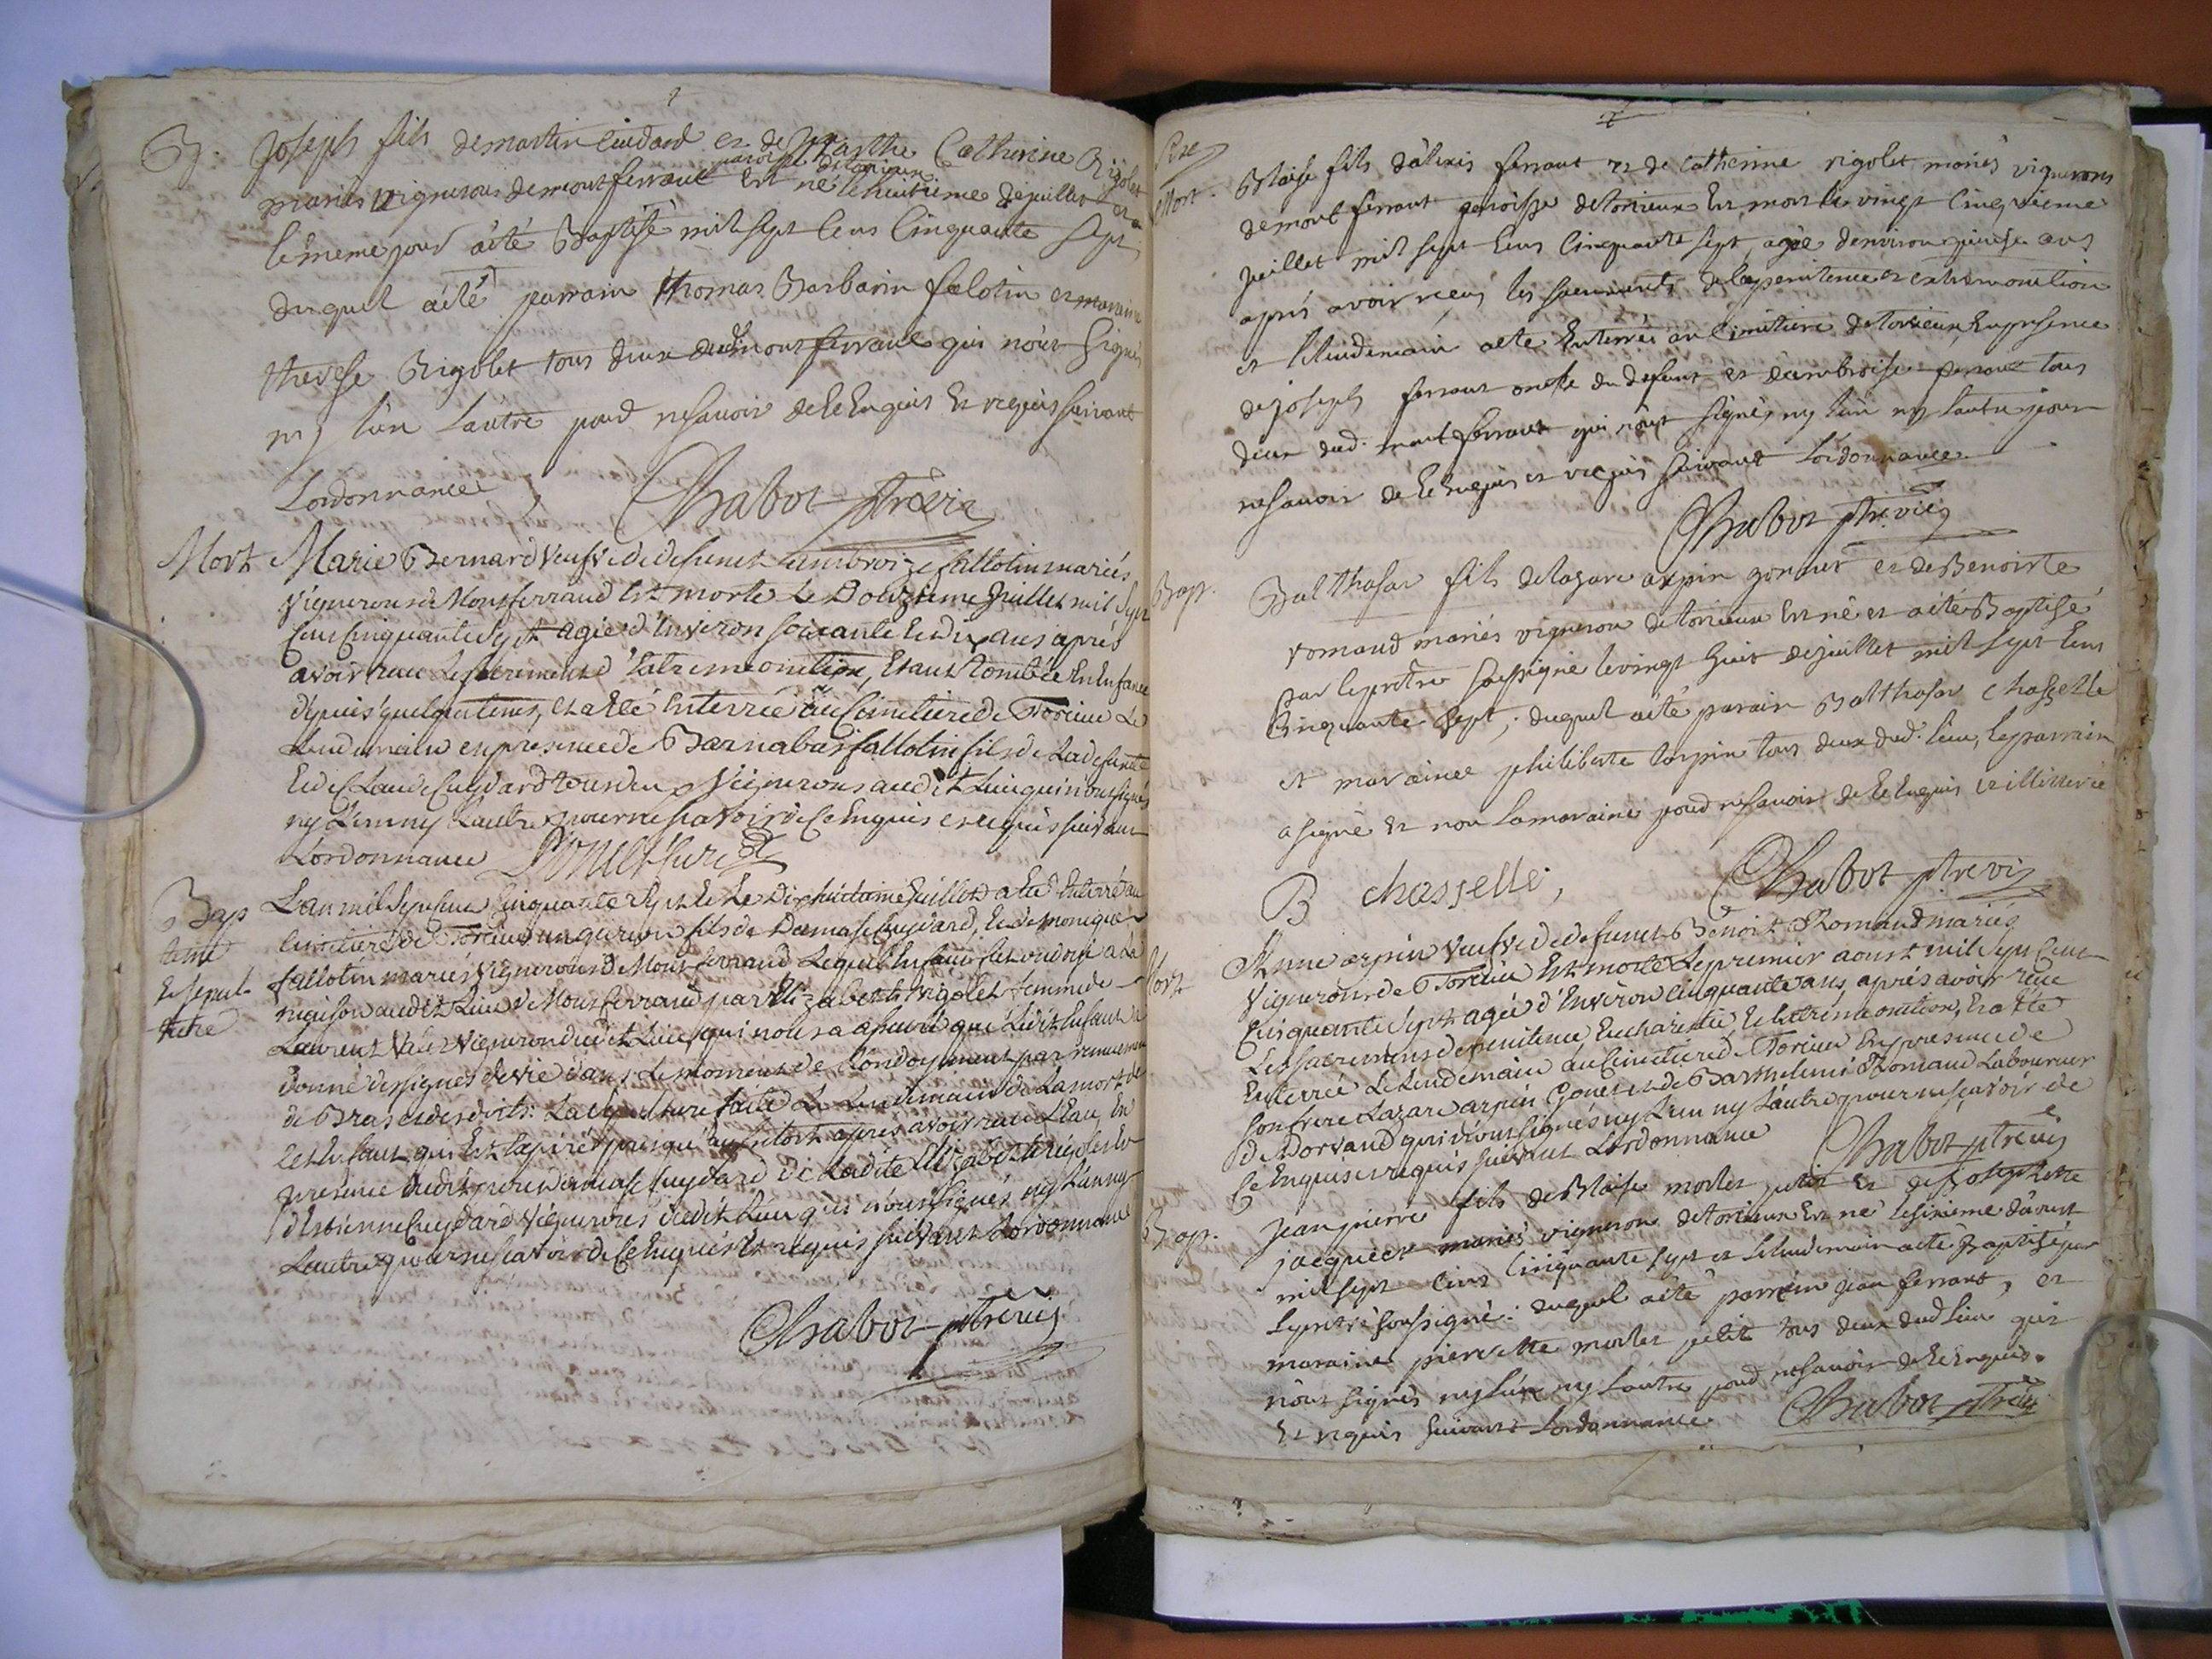 B. Joseph fils de martin cuidard et de Marthe Catherine Rigolet
paroisse de torcieux
mariés vignerons de montferrant Est né le huitieme de juillet et a
le meme jour a été Baptisé mil sept cens Cinquante sept,
duquel a été parrain thomas Barbarin falotin et maraine
therese Rigolet tous deux dud. montferrant qui n'ont signés
ny l'un l'autre pour ne savoir de ce Enquis Et requis suivant
Lordonnance, Chabot ptre vic
Mort Marie Bernard veufve de defunct ambroize fallotin mariés
vignerons de Montferrand Est morte Le Douzieme Juillet mil sept
Cens Cinquante Sept agée d'Environ soixante Et dix ans après
avoir receu Le sacrement d'Extremeonction, Etant tombée En Enfance
depuis quelque tems, et a été Enterrée au Cimetiere de Torcieu Le
Lendemain en presence de Barnabas fallotin fils de La defuncte
Et de Claude Cuydard tous deux Vignerons audit Lieu qui n'ont signés
ny L'un ny L'autre pour ne scavoir de Ce Enquis et requis suivant
Lordonnance
Bap
teme
Et sepul
ture
L'an mil sept cens Cinquante Sept et Le Dixhuictieme Juillet a Eté Enterré au
Cimetiere de Torcieu un garçon fils de Damase Cuydard, Et de monique
fallotin mariés Vignerons de Montferrand Lequel Enfant fut ondoyé a la
maison audit Lieu de Montferrand par Elizabeth rigolet femme de
Laurent Vigneron dudit Lieu, qui nous a assuré que Ledit Enfant a
donné des signes de vie dans Le moment de L'ondoyement par remuement
de Bras et des doits: La sepulture faite Le Lendemain de La mort de
cet Enfant qui Est Expiré presqu'aussitost après avoir receu L'Eau En
presence dudit pere Damase Cuydard de Ladite Elizabeth rigolet Et
d'Estienne Cuydard Vignerons dudit Lieu qui n'ont signés ny L'un ny
L'autre pour ne scavoir de Ce Enquis Et requis suivant Lordonnance
Chabot ptre vic
Mort. Blaise fils d'alexis ferrant et de Catherine rigolet mariés vignerons
de montferrant paroisse de torcieux Est mort le vingt Cinquieme
juillet mil sept Cens Cinquante sept, agée d'environ quinse ans
après avoir reçeu les sacrements de la penitence et extremonction
et le lendemain a eté Enterré au cimetiere de torcieux, En presence
de joseph ferrant oncle du defunt et d'ambroise ferrant tous
deux dud. montferrant qui n'ont signés ny l'un ny l'autre pour
ne savoir de ce Enquis et requis suivant Lordonnance.
Chabot ptre vic
Bap. Balthasar fils de lazare arpin gonnet et de Benoirte
romand mariés vigneron de torcieux Est né et a été Baptisé
par le pretre soussigné le vingt huit de juillet mil sept Cens
Cinquante Sept, duquel a été parain Balthasar chasselle
et maraine philiberte torpin tous deux dud. lieu, le parrain
a signé Et non La maraine pour ne savoir de Ce Enquis et illitterée
B chasselle, Chabot ptre vic
Mort Anne arpin veufve de defunct Benoit Romand mariés
Vignerons de Torcieu Est morte Le premier aoust mil Sept Cens
Cinquante Sept agée d'Environ Cinquante ans, après avoir receu
Les sacremens de penitence, Eucharistie, Et Extremeonction, Et a Eté
Enterrée Le Lendemain au Cimetiere de Torcieu En presence de
son frere Lazare arpin Gonet et de Barthelemi Romand Laboureur
de Dorvand qui n'ont signés ny L'un ny L'autre pour ne scavoir de
Ce Enquis et requis suivant Lordonnance Chabot ptre vic
Bap. Jean pierre fils de Blaise morlet petit Et de josephte
jacquet mariés vigneron de torcieux Est né le sixieme d'aoust
mil sept Cens Cinquante sept et le lendemain a été Baptisé par
le pretre soussigné: duquel a été parrein jean ferrant, et
maraine pierrette morlet petit tous deux dud. lieu qui
n'ont signés ny l'un ny L'autre pour ne savoir de Ce Enquis.
Et requis suivant Lordonnance. Chabot ptre vic